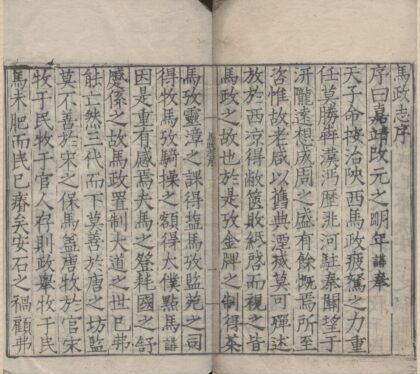 馬政志序
序曰嘉靖改元之明年講奉
天子命按治陝西馬政疲駑之力重
任莫勝奔漢沔歷洮河駐秦關望于
汧隴遠想成周之盛有餘慨焉所至
咨惟故老咸以舊典湮椷莫可殫述
放於西凉得敝篋敗紙啓而視之皆
馬政之故也於是攷金牌之制得茶
馬攷靈漳之課得塩馬攷監苑之司
得牧馬攷騎操之額得大僕㸃馬講
因是重有感焉夫馬之登耗國之紓
蹙係之故馬政置制大道之世已弗
能亡然三代而下莫善於唐之坊監
莫不善於宋之保馬盖唐牧於官宋
牧于民牧于官人存則政舉牧于民
馬未肥而民已瘠矣安石之禍顧弗